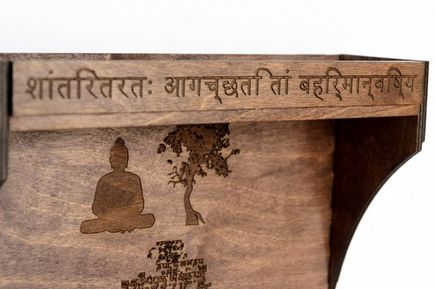 शांतरितरतः आगच्छताि तां बहरि्मान्वषि्य